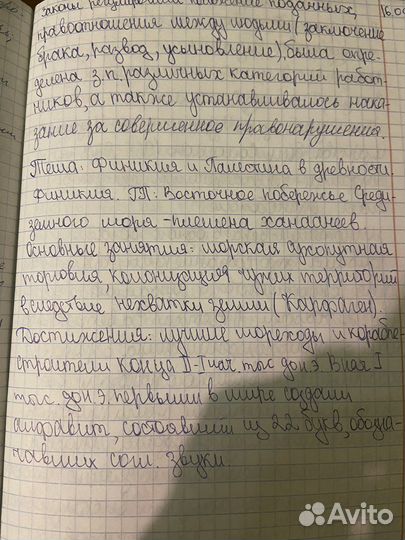 законы регулировали положение подданных,
правоотношения между людьми (заключение
брака, развод, усыновление), была опре-
делена з.п различных категорий работ-
ников, а также устанавливалось нака-
зание за совершенное правонарушения.
Тема: Финикия и Палестина в древности.
Финикия. ГП: Восточное побережье Среди-
земного моря - племена ханаанеев.
Основные занятия: морская сухопутная
торговля, колонизация чужих территорий
вследствие нехватки земли (Карфаген).
Достижения: лучшие мореходы и корабле-
строители конца II-I нач. тыс до н.э. В нач I
тыс. до н.э. первыми в мире создали
алфавит, состоявший из 22 букв, обозна-
чавших согл. звуки.
Avito